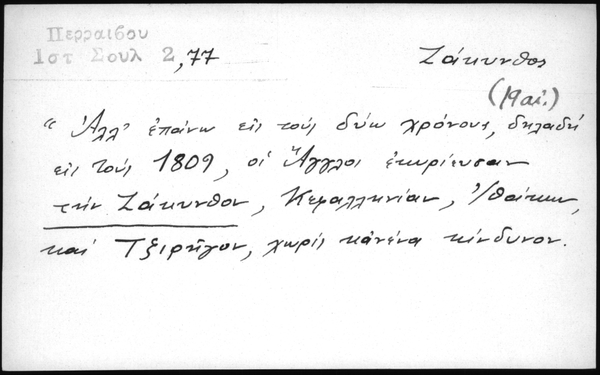 Περραιβου
Ιστ Σουλ 2,77
Ζάκυνθος
(19 αἰ.)
"Ἀλλ' ἐπάνω εἰς τούς δύω χρόνους, δηλαδή
εἰς τούς 1809, οἱ Ἄγγλοι ἐκυρίευσαν
τήν Ζάκυνθον, Κεφαλληνίαν, Ἰθάκην,
καί Τζιρῆγον, χωρίς κἀνένα κίνδυνον.